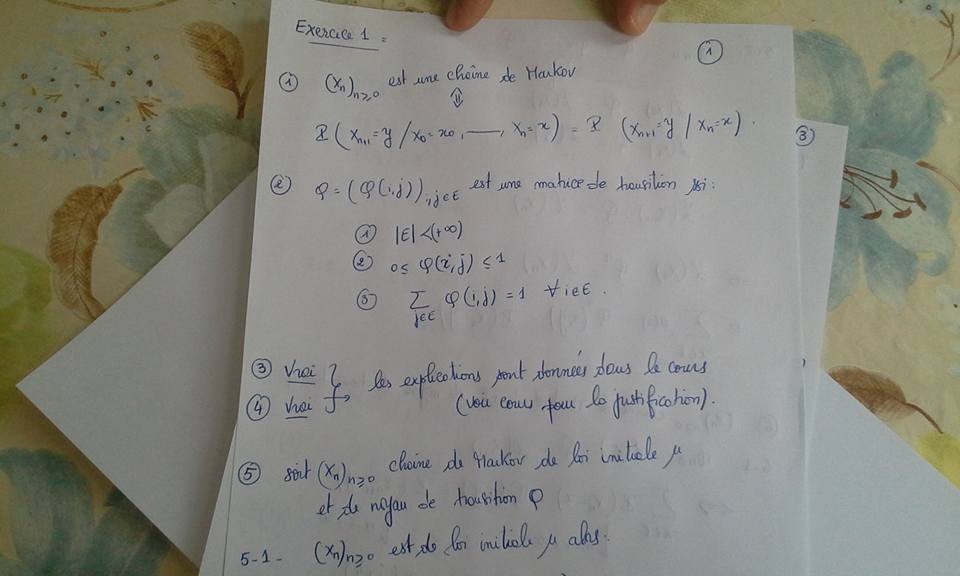 Exercice 1 :
①
① (Xn)n≥0 est une chaîne de Markov
⇕
P(Xn+1=y / X0=x0, —, Xn=x) = P(Xn+1=y | Xn=x).
③
② φ = (φ(i,j))i,j∈E est une matrice de transition ssi :
① |E| < (+∞)
② 0 ≤ φ(i,j) ≤ 1
③ ∑j∈E φ(i,j) = 1 ∀ i∈E.
③ Vrai } les explications sont données dans le cours
④ Vrai (voir cours pour la justification).
⑤ soit (Xn)n≥0 chaîne de Markov de loi initiale μ
et de noyau de transition φ
5-1- (Xn)n≥0 est de loi initiale μ alors :